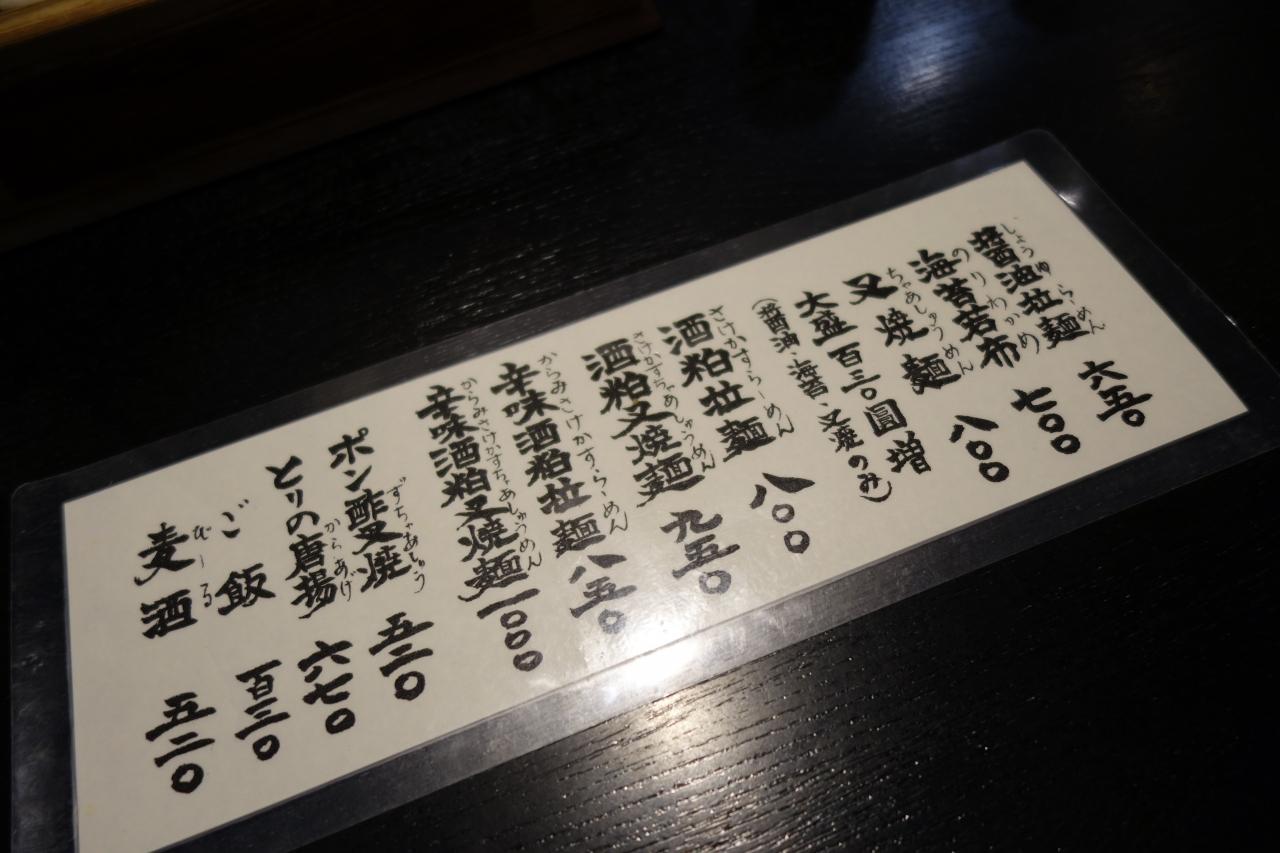 醤油拉麺 六五〇
しょうゆらーめん
海苔若布 七〇〇
のりわかめ
叉焼麺 八〇〇
ちゃあしゅうめん
大盛百三〇圓増
(醤油、海苔、叉焼のみ)
酒粕拉麺 八〇〇
さけかすらーめん
酒粕叉焼麺 九五〇
さけかすちゃあしゅうめん
辛味酒粕拉麺 八五〇
からみさけかすらーめん
辛味酒粕叉焼麺 一〇〇〇
からみさけかすちゃあしゅうめん
ポン酢叉焼 五二〇
ずちゃあしゅう
とりの唐揚 六七〇
からあげ
ご飯 百三〇
麦酒 五二〇
びーる